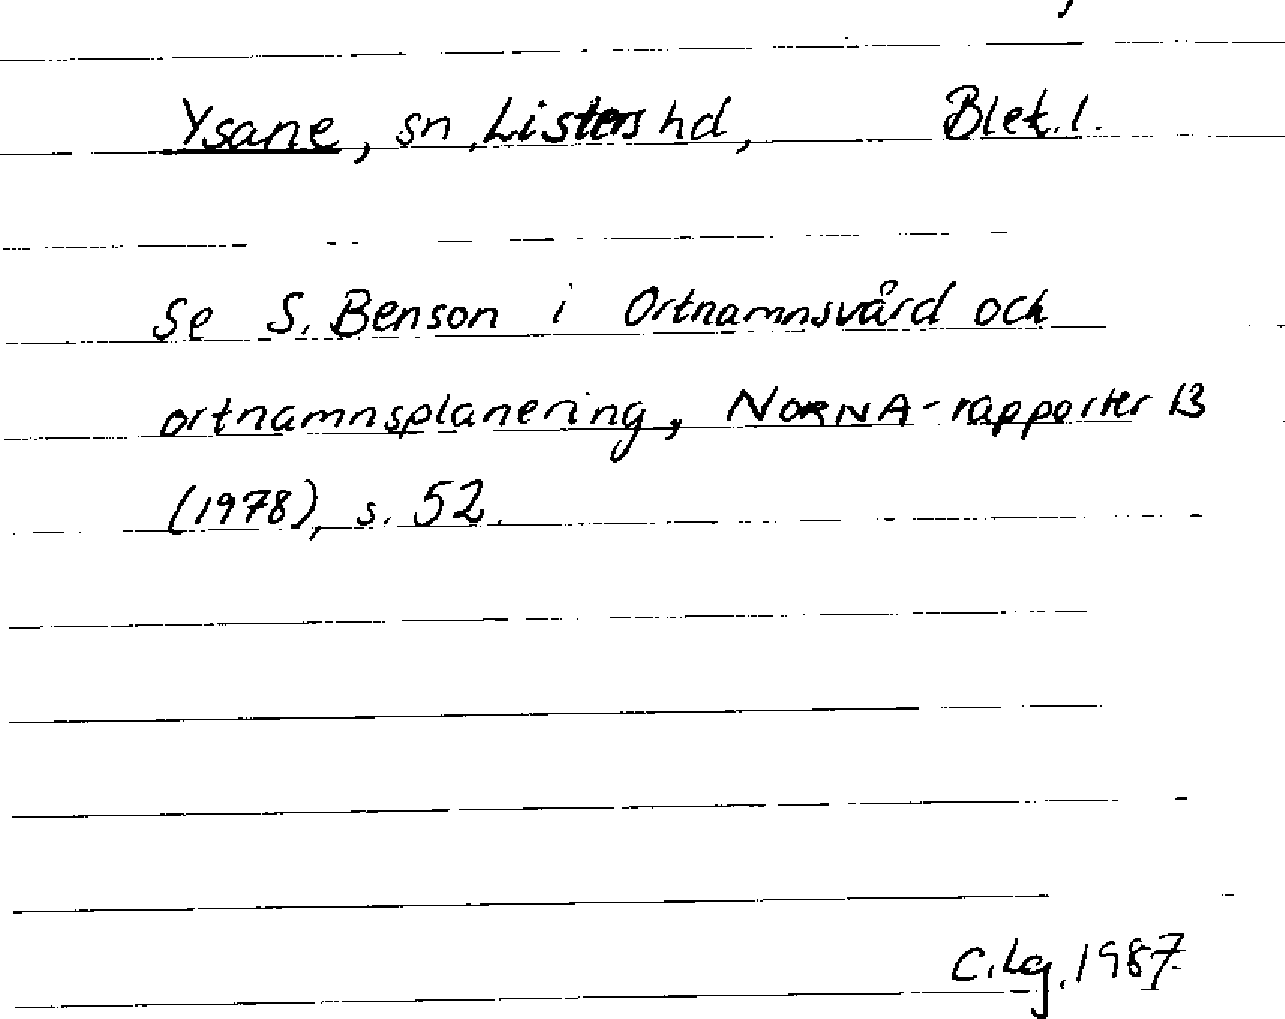 Ysane, sn, Listers hd, Blek.l.
Se S. Benson i Ortnamnsvård och
ortnamnsplanering, NORNA-rapporter 13
(1978), s. 52.
C.Lg. 1987.